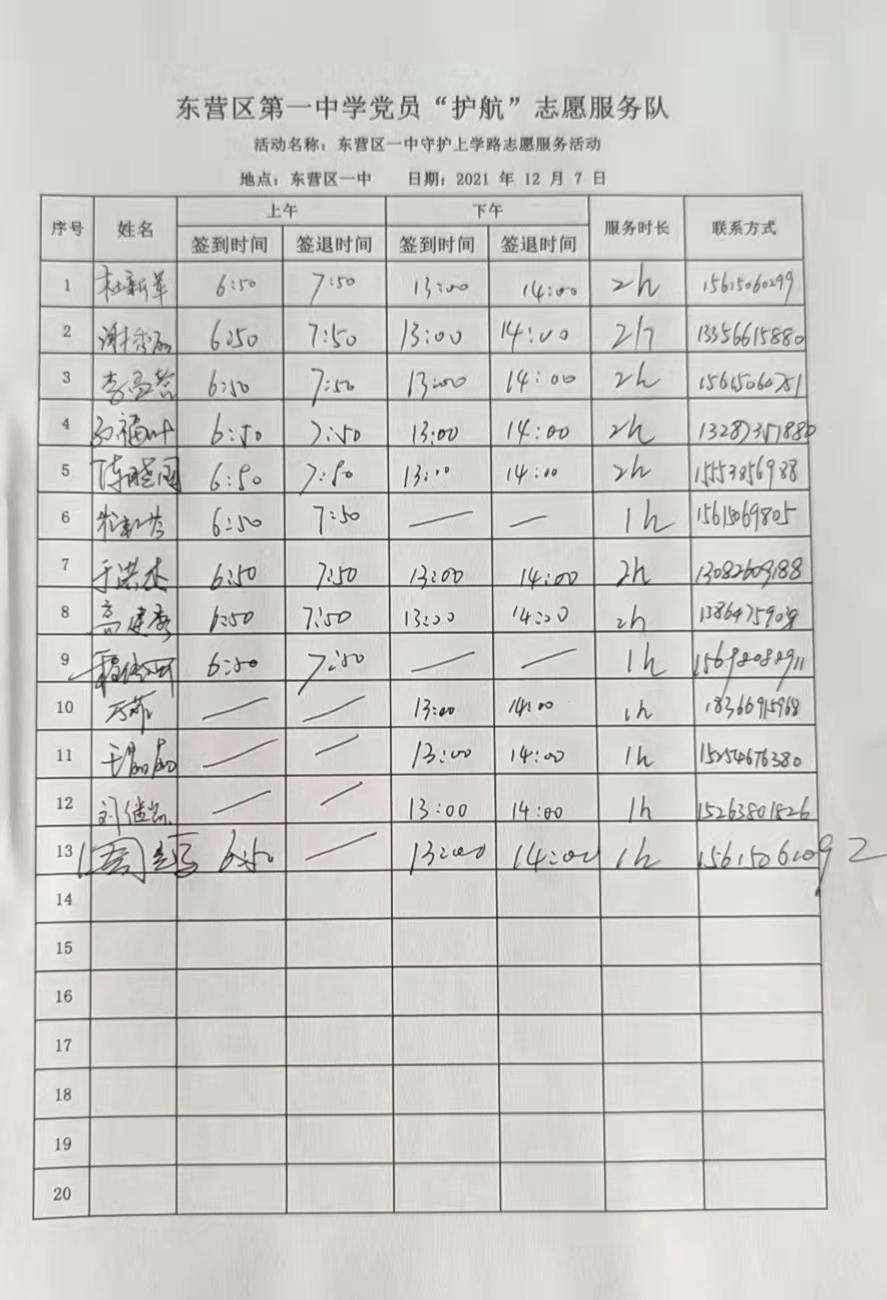 东营区第一中学党员“护航”志愿服务队
活动名称：东营区一中守护上学路志愿服务活动
地点：东营区一中 日期：2021 年 12 月 7 日
序号 姓名 上午 下午 服务时长 联系方式
签到时间 签退时间 签到时间 签退时间
1 杜新军 6:50 7:50 13:00 14:00 2h 15615060299
2 6:50 7:50 13:00 14:00 2h 13356615880
3 6:50 7:50 13:00 14:00 2h
4 6:50 7:50 13:00 14:00 2h 13287351880
5 6:50 7:50 13:00 14:00 2h 15553856988
6 6:50 7:50 — — 1h
7 于洪杰 6:50 7:50 13:00 14:00 2h 13082609188
8 高建秀 6:50 7:50 13:00 14:00 2h
9 6:50 7:50 — — 1h
10 万菲 — — 13:00 14:00 1h 18366915968
11 — — 13:00 14:00 1h 15254676380
12 刘继凯 — — 13:00 14:00 1h 15263801826
13 6:50 — 13:00 14:00 1h 15615061092
14
15
16
17
18
19
20